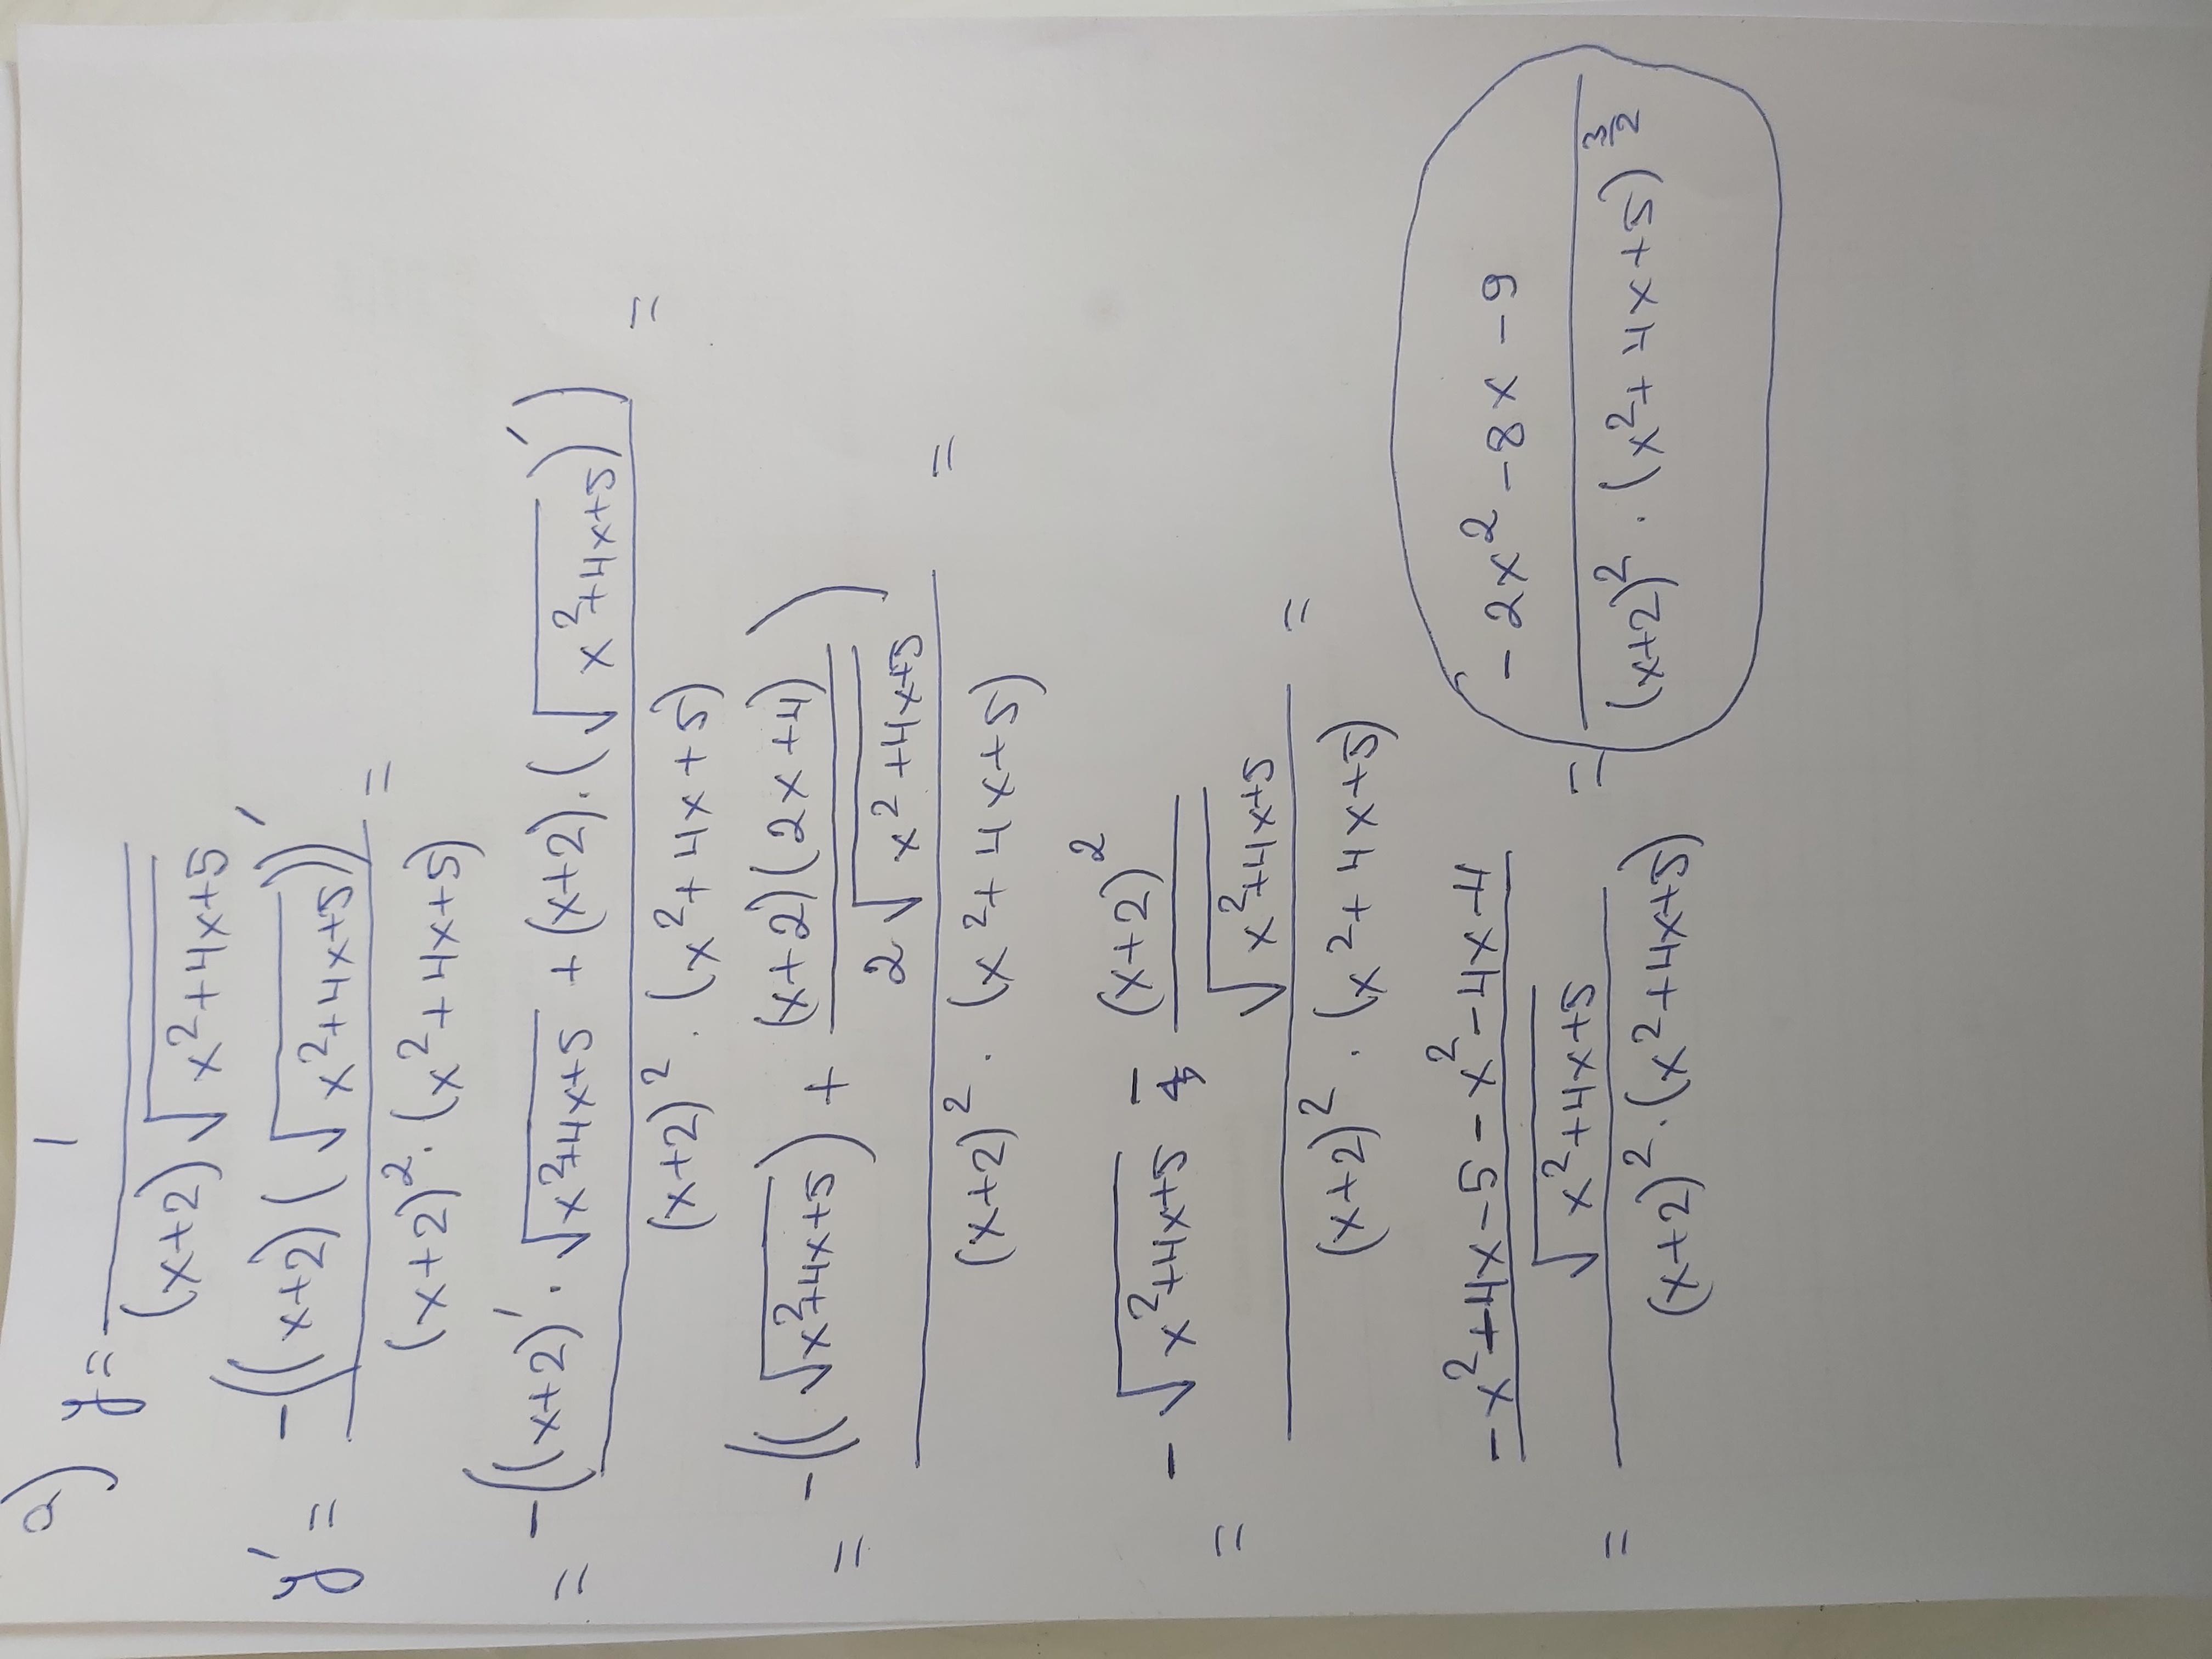 a) y = 1 / ((x+2)√(x²+4x+5))
y' = -((x+2)(√(x²+4x+5)))' / ((x+2)²·(x²+4x+5)) =
= -((x+2)'·√(x²+4x+5) + (x+2)·(√(x²+4x+5))') / ((x+2)²·(x²+4x+5)) =
= -((√(x²+4x+5)) + (x+2)(2x+4) / (2√(x²+4x+5))) / ((x+2)²·(x²+4x+5)) =
= (-√(x²+4x+5) - (x+2)² / √(x²+4x+5)) / ((x+2)²·(x²+4x+5)) =
= ((-x²+4x-5-x²-4x-4) / √(x²+4x+5)) / ((x+2)²·(x²+4x+5)) = (-2x²-8x-9) / ((x+2)²·(x²+4x+5)^(3/2))